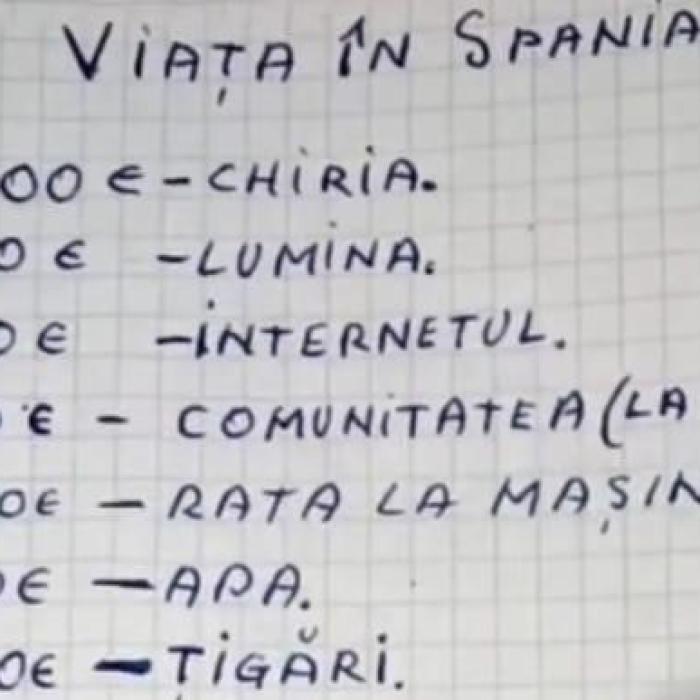 VIAȚA ÎN SPANIA
00 € - CHIRIA.
0 € - LUMINA.
0 € - INTERNETUL.
€ - COMUNITATEA (LA
0€ - RATA LA MAȘIN
0€ - APA.
0€ - ȚIGĂRI.